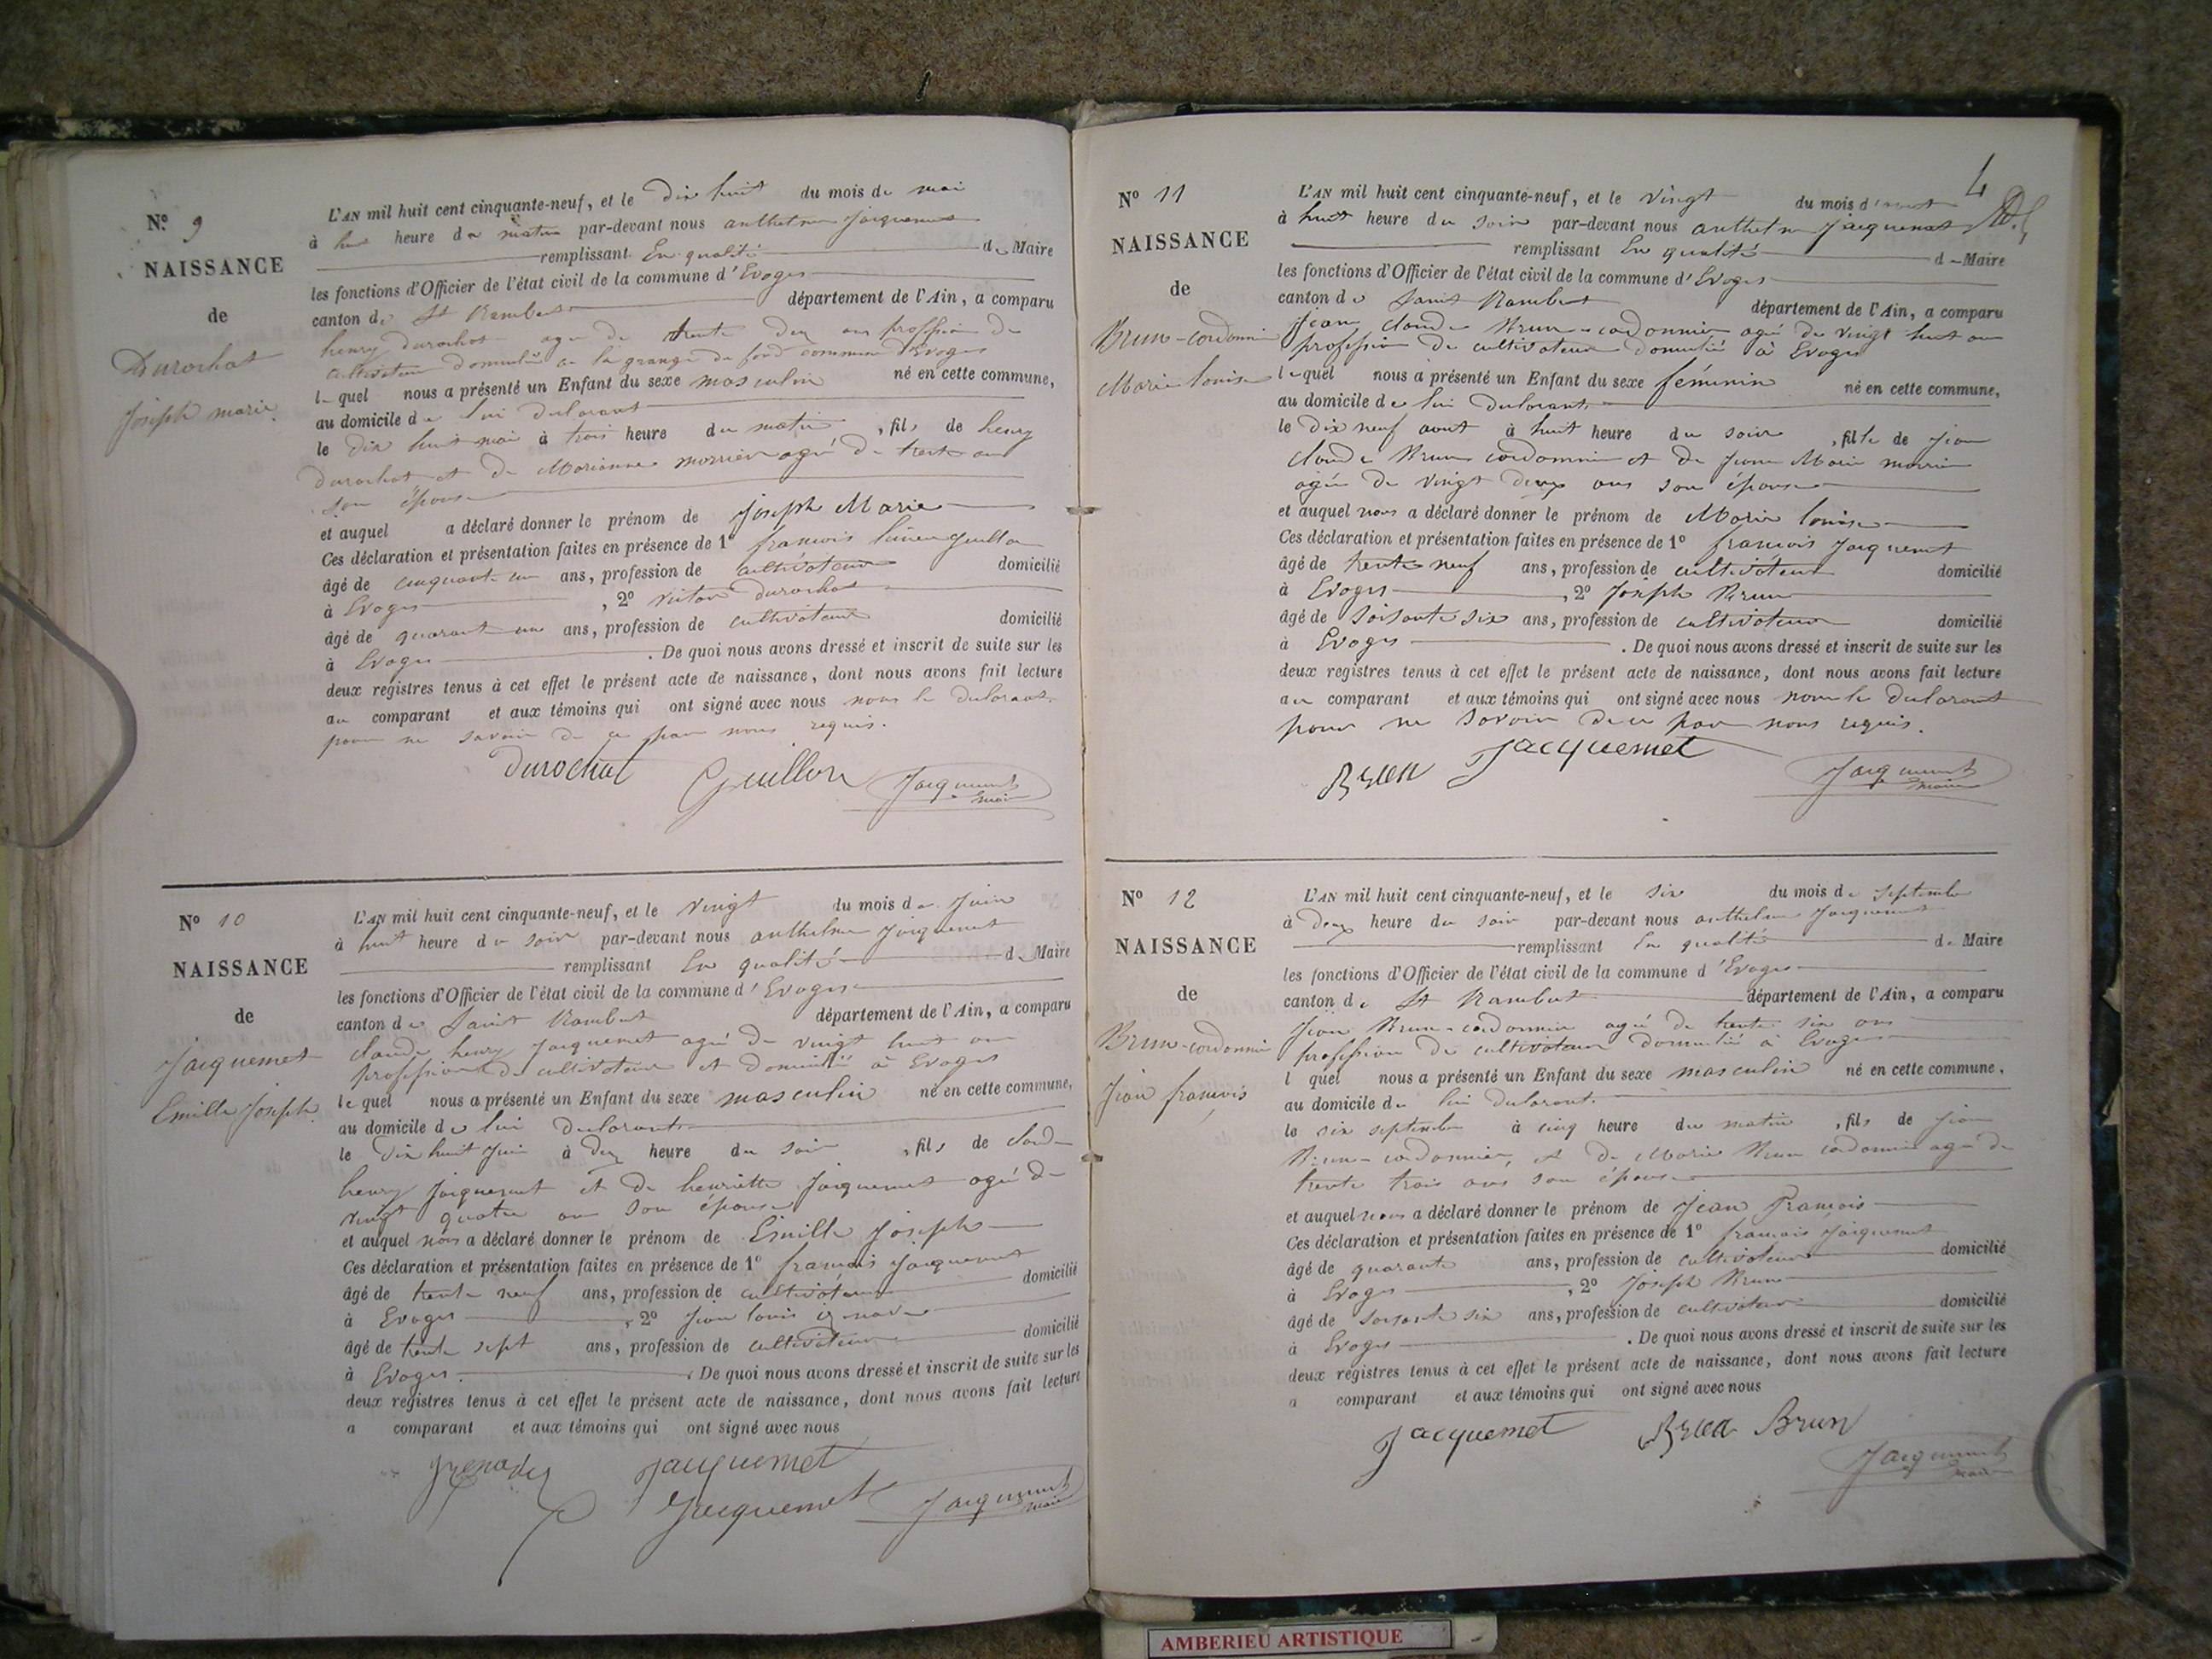 N° 9
NAISSANCE
de
Durochat
Joseph marie
L'AN mil huit cent cinquante-neuf, et le Dix huit du mois de mai
à heure du matin par-devant nous anthelme Jacquemet
remplissant En qualité de Maire
les fonctions d'Officier de l'état civil de la commune d'Evoges
canton de St Rambert département de l'Ain, a comparu
henry durochat agé de trente ans proffession de
cultivateur domicilié a la grange du fond commune d'Evoges
le quel nous a présenté un Enfant du sexe masculin né en cette commune,
au domicile de lui declarant
le dix huit mai à trois heure du matin, fils de henry
Durochat et de Marianne agé de trente ans
son épouse
et auquel a déclaré donner le prénom de Joseph Marie
Ces déclaration et présentation faites en présence de 1° francois guillon
âgé de cinquante un ans, profession de cultivateur domicilié
à Evoges, 2° victor durochat
âgé de quarant un ans, profession de cultivateur domicilié
à Evoges. De quoi nous avons dressé et inscrit de suite sur les
deux registres tenus à cet effet le présent acte de naissance, dont nous avons fait lecture
au comparant et aux témoins qui ont signé avec nous non le declarant
pour ne savoir de ce par nous requis.
Durochat Guillon Jacquemet
maire
N° 10
NAISSANCE
de
Jacquemet
Emille Joseph
L'AN mil huit cent cinquante-neuf, et le vingt du mois de Juin
à huit heure du soir par-devant nous anthelme Jacquemet
remplissant En qualité de Maire
les fonctions d'Officier de l'état civil de la commune d'Evoges
canton de Saint Rambert département de l'Ain, a comparu
claude henry Jacquemet agé de vingt huit an
profession de cultivateur et domicilié à Evoges
le quel nous a présenté un Enfant du sexe masculin né en cette commune,
au domicile de lui declarant
le Dix huit Juin à deux heure du soir, fils de claude
henry Jacquemet et de henriette Jacquemet agé de
vingt quatre an son épouse
et auquel nous a déclaré donner le prénom de Emille Joseph
Ces déclaration et présentation faites en présence de 1° francois Jacquemet
âgé de trente neuf ans, profession de cultivateur domicilié
à Evoges, 2° Jean louis
âgé de trente sept ans, profession de cultivateur domicilié
à Evoges. De quoi nous avons dressé et inscrit de suite sur les
deux registres tenus à cet effet le présent acte de naissance, dont nous avons fait lecture
a comparant et aux témoins qui ont signé avec nous
Jacquemet
Jacquemet Jacquemet
maire
4
N° 11
NAISSANCE
de
Brun-cordonnier
Marie louise
L'AN mil huit cent cinquante-neuf, et le vingt du mois d'aout
à huit heure du soir par-devant nous anthelme Jacquemet
remplissant En qualité d Maire
les fonctions d'Officier de l'état civil de la commune d'Evoges
canton de Saint Rambert département de l'Ain, a comparu
Jean claude Brun-cordonnier agé de vingt huit an
profession de cultivateur domicilié à Evoges
le quel nous a présenté un Enfant du sexe féminin né en cette commune,
au domicile de lui declarant
le dix neuf aout à huit heure du soir, fille de Jean
claude Brun cordonnier et de Jeanne Marie
agée de vingt deux ans son épouse
et auquel nous a déclaré donner le prénom de Marie louise
Ces déclaration et présentation faites en présence de 1° francois Jacquemet
âgé de trente neuf ans, profession de cultivateur domicilié
à Evoges, 2° Joseph Brun
âgé de soisante six ans, profession de cultivateur domicilié
à Evoges. De quoi nous avons dressé et inscrit de suite sur les
deux registres tenus à cet effet le présent acte de naissance, dont nous avons fait lecture
au comparant et aux témoins qui ont signé avec nous non le declarant
pour ne savoir de ce par nous requis.
Brun Jacquemet Jacquemet
maire
N° 12
NAISSANCE
de
Brun-cordonnier
Jean francois
L'AN mil huit cent cinquante-neuf, et le six du mois de septembre
à deux heure du soir par-devant nous anthelme Jacquemet
remplissant En qualité de Maire
les fonctions d'Officier de l'état civil de la commune d'Evoges
canton de St Rambert département de l'Ain, a comparu
Jean Brun-cordonnier agé de trente six ans
profession de cultivateur domicilié à Evoges
l quel nous a présenté un Enfant du sexe masculin né en cette commune,
au domicile de lui declarant
le six septembre à cinq heure du matin, fils de Jean
Brun-cordonnier, et de Marie Brun cordonnier agé de
trente trois ans son épouse
et auquel nous a déclaré donner le prénom de Jean Francois
Ces déclaration et présentation faites en présence de 1° francois Jacquemet
âgé de quarante ans, profession de cultivateur domicilié
à Evoges, 2° Joseph Brun
âgé de soisante six ans, profession de cultivateur domicilié
à Evoges. De quoi nous avons dressé et inscrit de suite sur les
deux registres tenus à cet effet le présent acte de naissance, dont nous avons fait lecture
a comparant et aux témoins qui ont signé avec nous
Jacquemet Brun Brun
Jacquemet
maire
AMBERIEU ARTISTIQUE